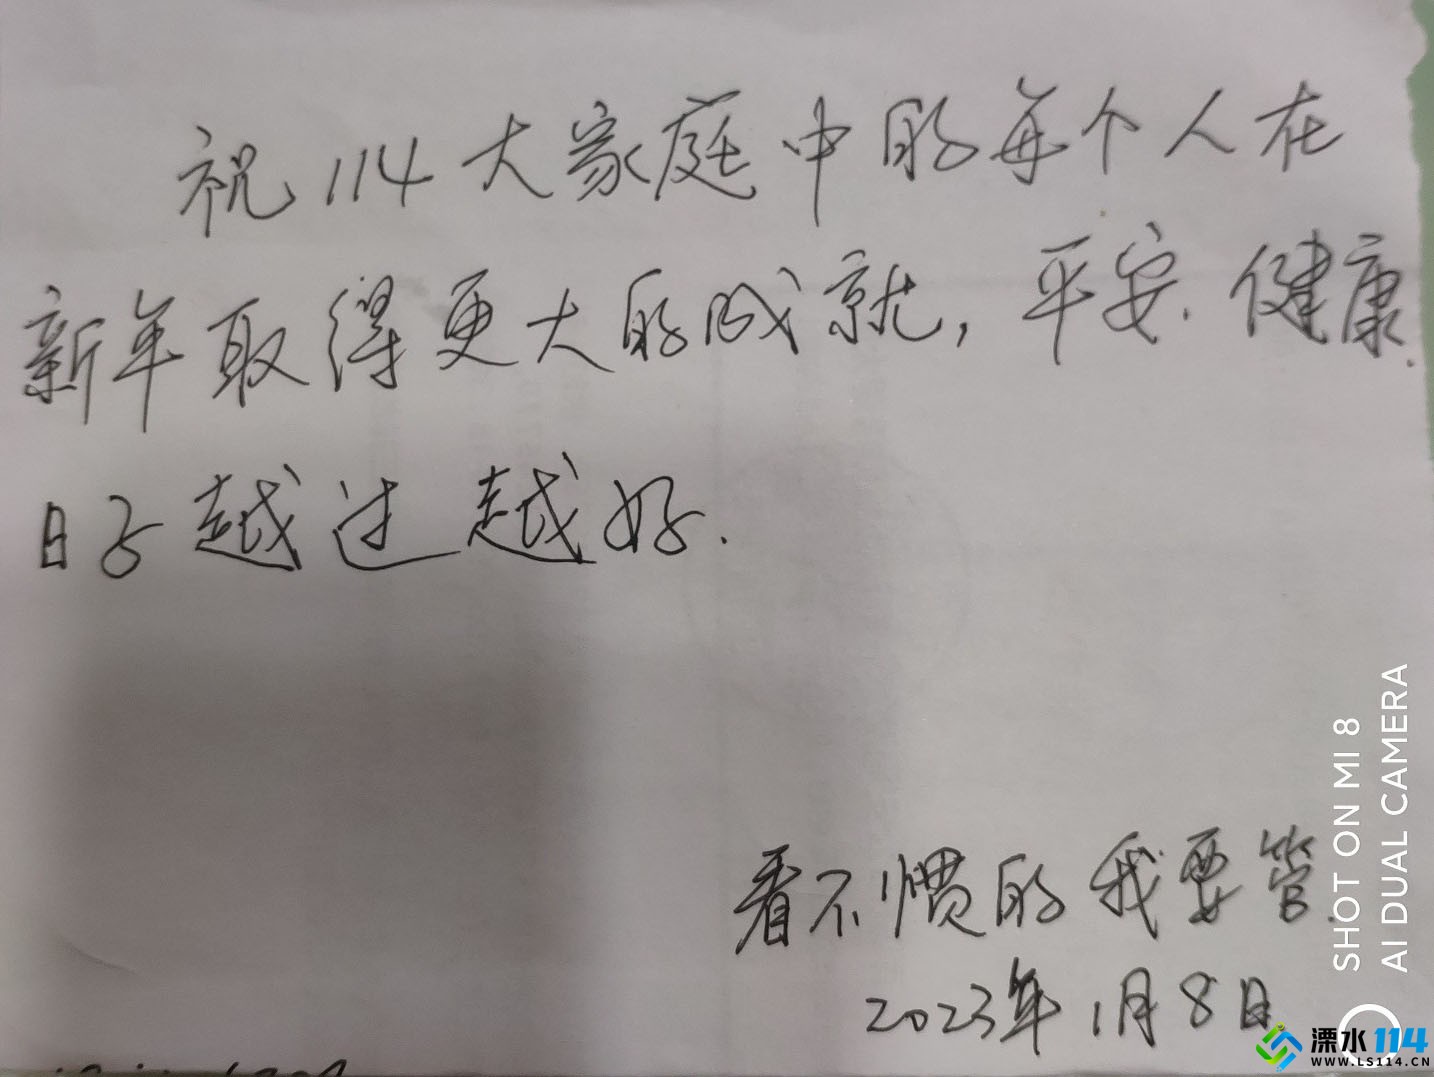 祝114大家庭中的每个人在
新年取得更大的成就，平安、健康.
日子越过越好.
看不惯的我要管.
2023年1月8日
SHOT ON MI 8
AI DUAL CAMERA
溧水114
WWW.LS114.CN